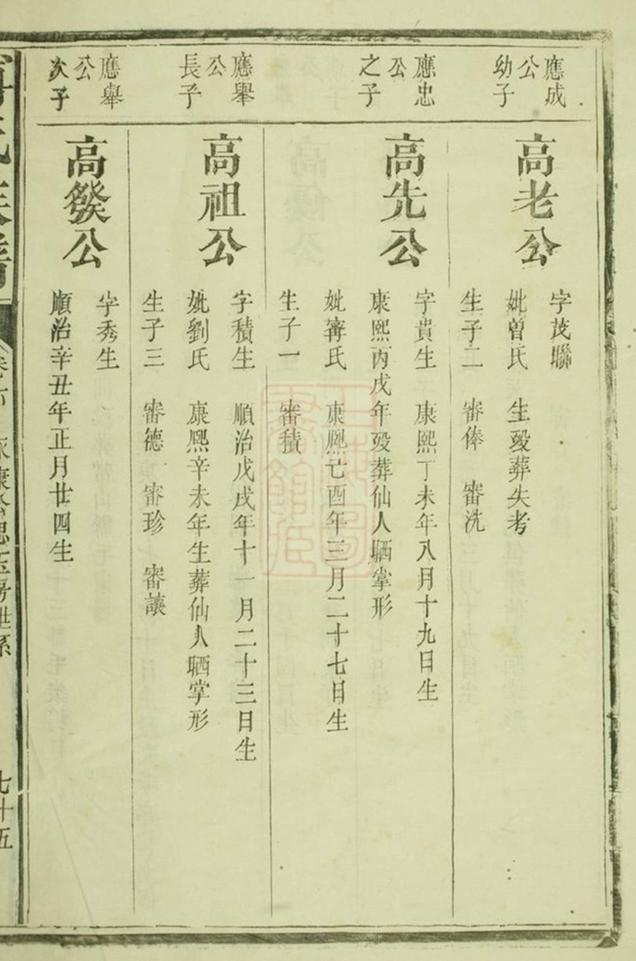 應成
公
幼子
高老公
字茂聯
妣曾氏 生歿葬失考
生子二 審俸 審洗
應忠
公
之子
高先公
字貴生 康熙丁未年八月十九日生
康熙丙戌年歿葬仙人晒掌形
妣寗氏 康熙己酉年三月二十七日生
生子一 審積
應舉
公
長子
高祖公
字積生 順治戊戌年十一月二十三日生
妣劉氏 康熙辛未年生葬仙人晒掌形
生子三 審德 審珍 審讓
應舉
公
次子
高發公
字秀生
順治辛丑年正月廿四生
氏族譜
七十五